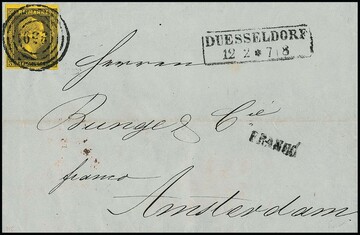 DUESSELDORF
12 2 * 7 | 8
Herren
Bunge & Cie
FRANCO
franco
Amsterdam